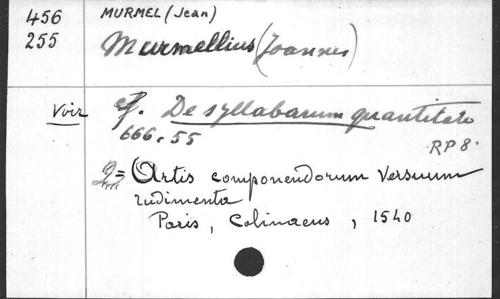 456 MURMEL (Jean)
255 Murmellius (Joannes)
Voir cf. De syllabarum quantitate
666.55
RP 8.
2= Artis componendorum versuum
rudimenta
Paris, Colinaeus, 1540